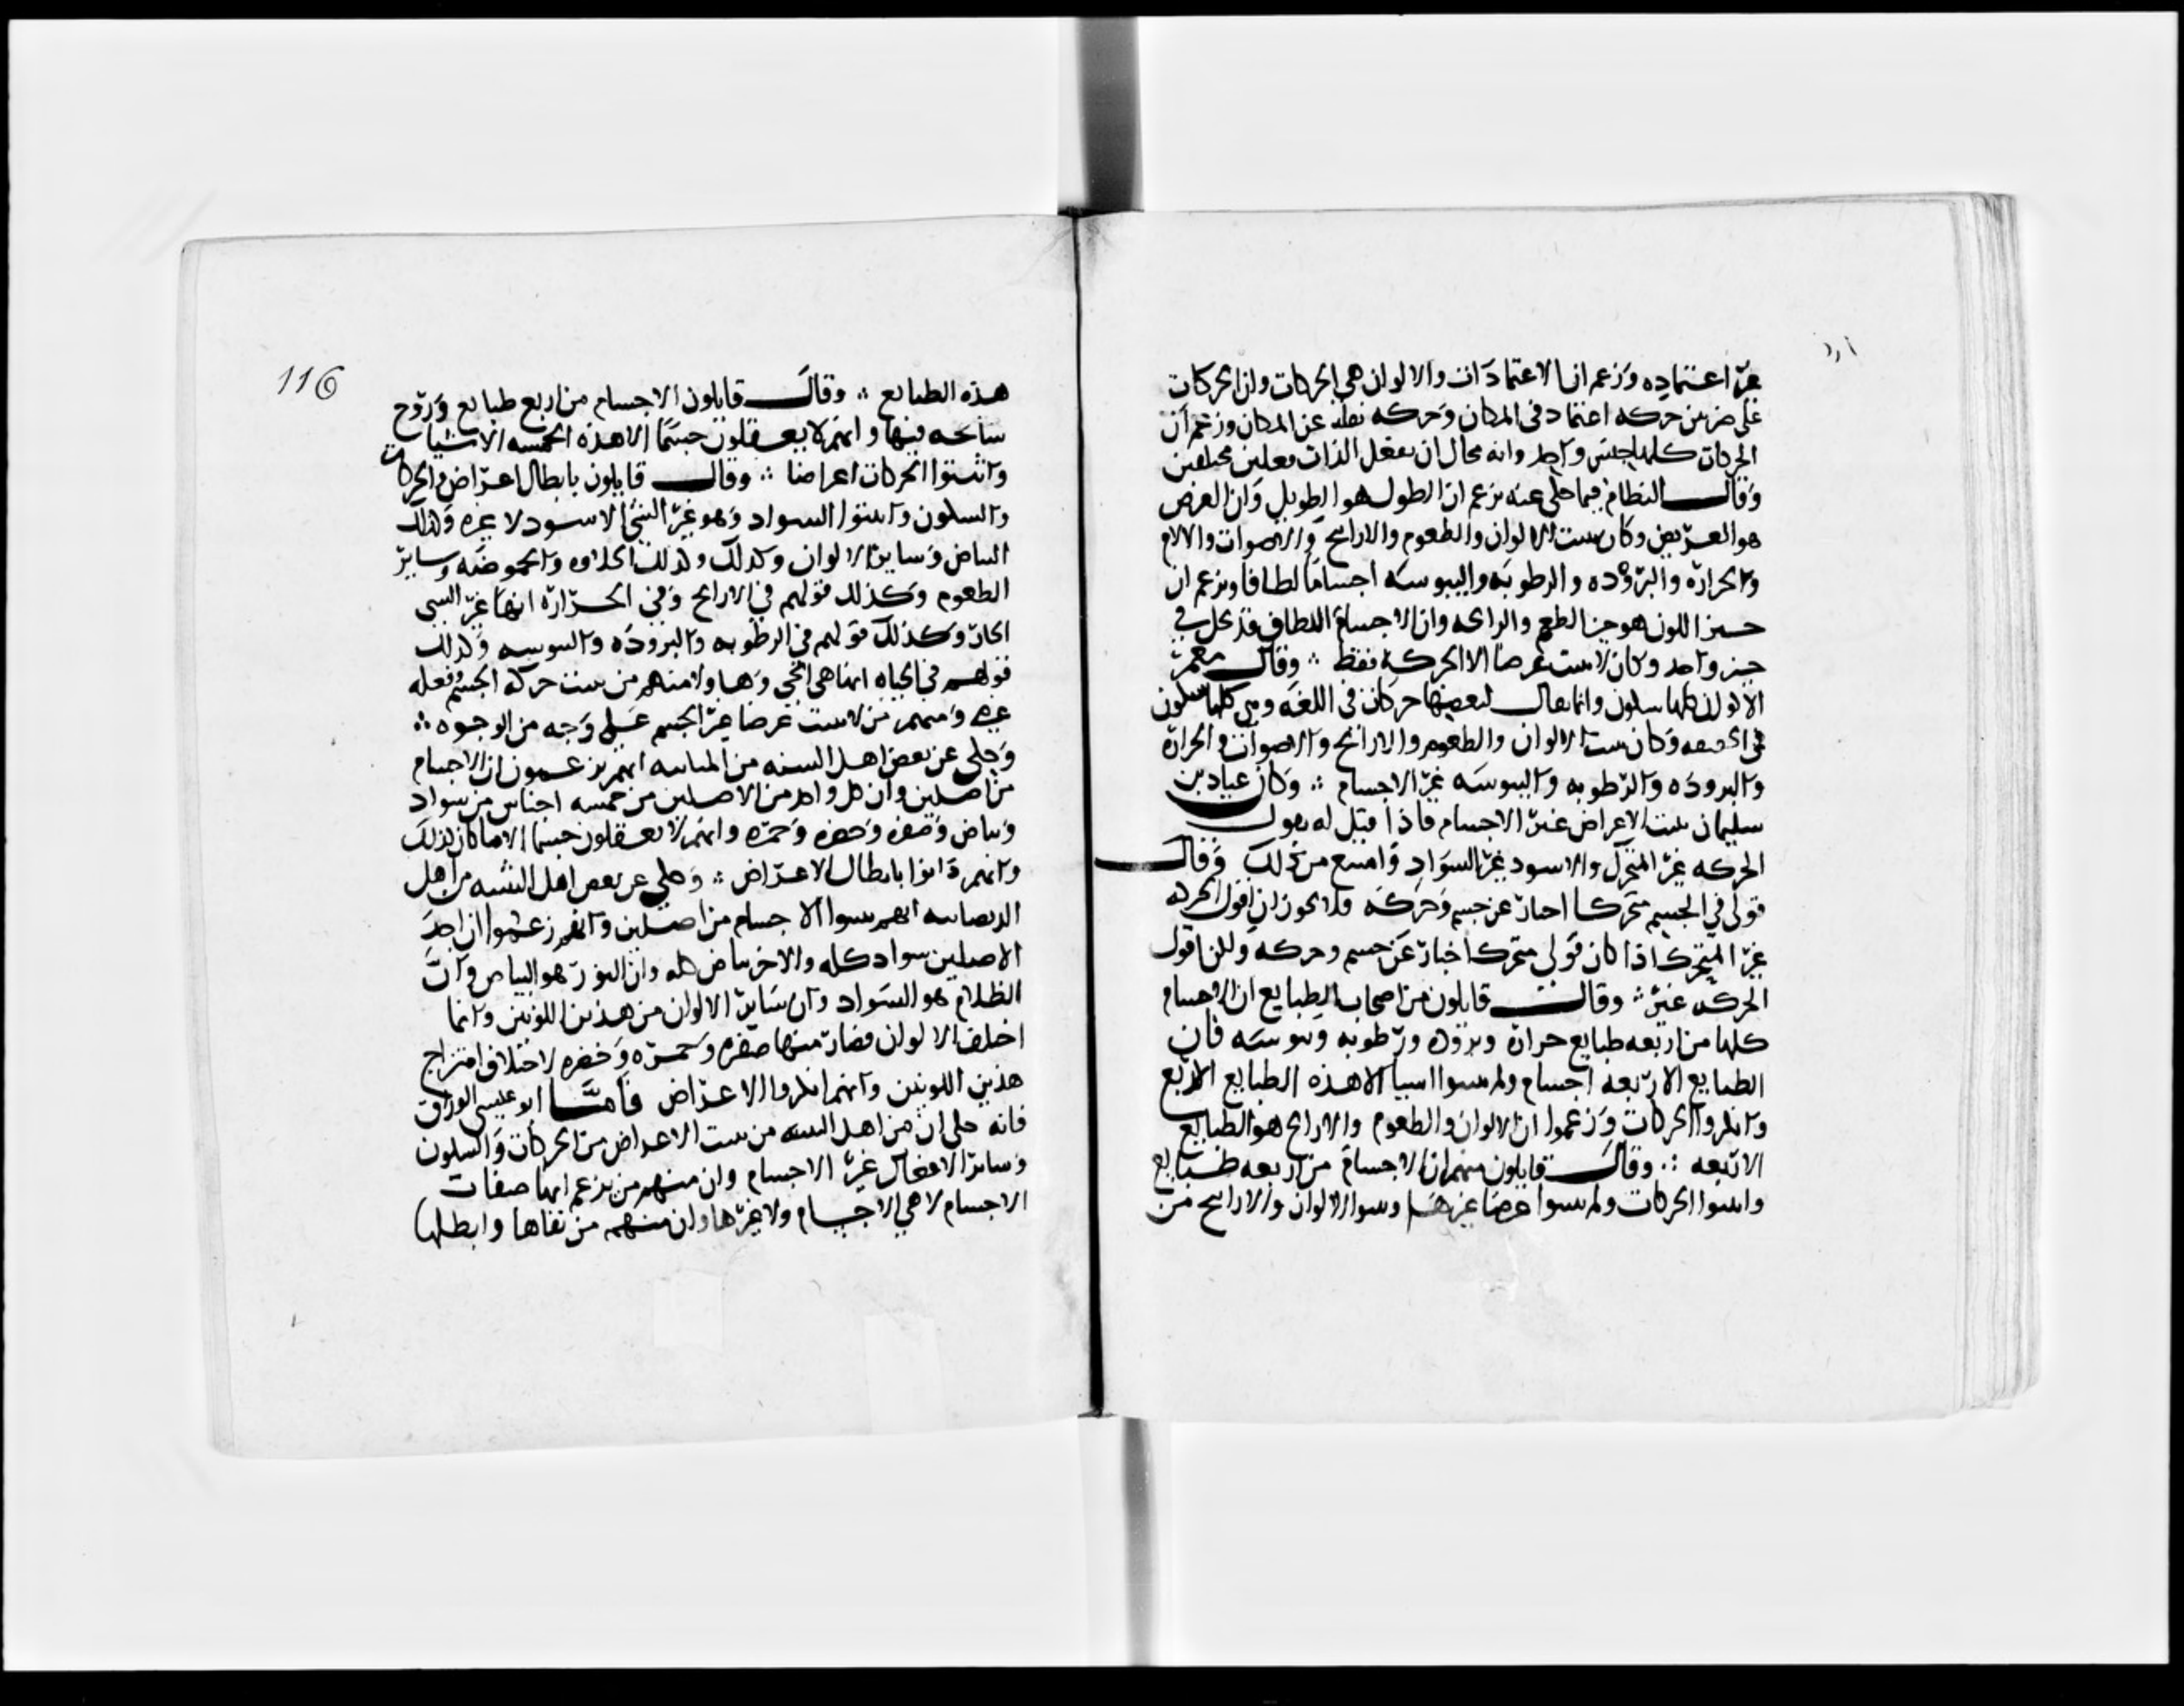 غير اعتماده وزعم ان الاعتمادات والالوان هي الحركات وان الحركات
على ضربين حركه اعتماد في المكان وحركه نقله عن المكان وزعم ان
الحركات كلها جنس واحد وانه محال ان يفعل الذات فعلين مختلفين
وقال النظام فيما حكي عنه يزعم ان الطول هو الطويل وان العرض
هو العريض وكان يثبت الالوان والطعوم والاراييح والاصوات والالام
والحراره والبروده والرطوبه واليبوسه اجساما لطافا ويزعم ان
حيز اللون هو حيز الطعم والرايحه وان الاجسام اللطاف قد تحل في
حيز واحد وكان لا يثبت عرضا الا الحركه فقط ؞ وقال معمر
الالوان كلها سكون وانما يقال لبعضها حركات في اللغه وهي كلها سكون
في الحقيقه وكان يثبت الالوان والطعوم والاراييح والاصوات والحراره
والبروده والرطوبه واليبوسه غير الاجسام ؞ وكان عباد بن
سليمان يثبت الاعراض غير الاجسام فاذا قيل له يقول
الحركه غير المتحرك والاسود غير السواد وامتنع من ذلك وقال
قولي في الجسم متحرك اخبار عن جسم وحركه فلا يجوز ان اقول الحركه
غير المتحرك اذا كان قولي متحرك اخبار عن جسم وحركه ولكن اقول
الحركه غير ؞ وقال قايلون من اصحاب الطبايع ان الاجسام
كلها من اربعه طبايع حراره وبروده ورطوبه ويبوسه فان
الطبايع الاربعه اجسام ولم يثبتوا شيا الا هذه الطبايع الاربع
وانكروا الحركات وزعموا ان الالوان والطعوم والاراييح هو الطبايع
الاربعه ؞ وقال قايلون منهم ان الاجسام من اربعه طبايع
واثبتوا الحركات ولم يثبتوا عرضا غيرها وثبتوا الالوان والاراييح من
116
هذه الطبايع ؞ وقال قايلون الاجسام من اربع طبايع وروح
سابحه فيها وانهم لا يعقلون جسما الا هذه الخمسه الاشيا
واثبتوا الحركات اعراضا ؞ وقال قايلون بابطال اعراض والحركات
والسكون واثبتوا السواد وهو غير الشي الاسود لا غيره وكذلك
البياض وساير الالوان وكذلك وكذلك الحلاوه والحموضه وساير
الطعوم وكذلك قولهم في الاراييح وفي الحراره انها غير الشي
الحار وكذلك قولهم في الرطوبه والبروده واليبوسه وكذلك
قولهم في الحياه انها هي الحي وهاولا منهم من يثبت حركه الجسم وفعله
غيره ومنهم من لا يثبت عرضا غير الجسم على وجه من الوجوه ؞
وحكي عن بعض اهل التثنيه من المنانيه انهم يزعمون ان الاجسام
من اصلين وان كل واحد من الاصلين من خمسه اجناس من سواد
وبياض وصفره وخضره وحمره وانهم لا يعقلون جسما الا ما كان كذلك
وانهم دانوا بابطال الاعراض ؞ وحكي عن بعض اهل التثنيه من اهل
الديصانيه انهم ثبتوا الاجسام من اصلين وانهم زعموا ان احد
الاصلين سواد كله والاخر بياض كله وان النور هو البياض وان
الظلام هو السواد وان ساير الالوان من هذين اللونين وانما
اختلف الالوان فصار منها صفره وحمره وخضره لاختلاف امتزاج
هذين اللونين وانهم انكروا الاعراض فاما ابو عيسى الوراق
فانه حكى ان من اهل التثنيه من يثبت الاعراض من الحركات والسكون
وساير الافعال غير الاجسام وان منهم من يزعم انها صفات
الاجسام لا هي الاجسام ولا غيرها وان منهم من نفاها وابطلها